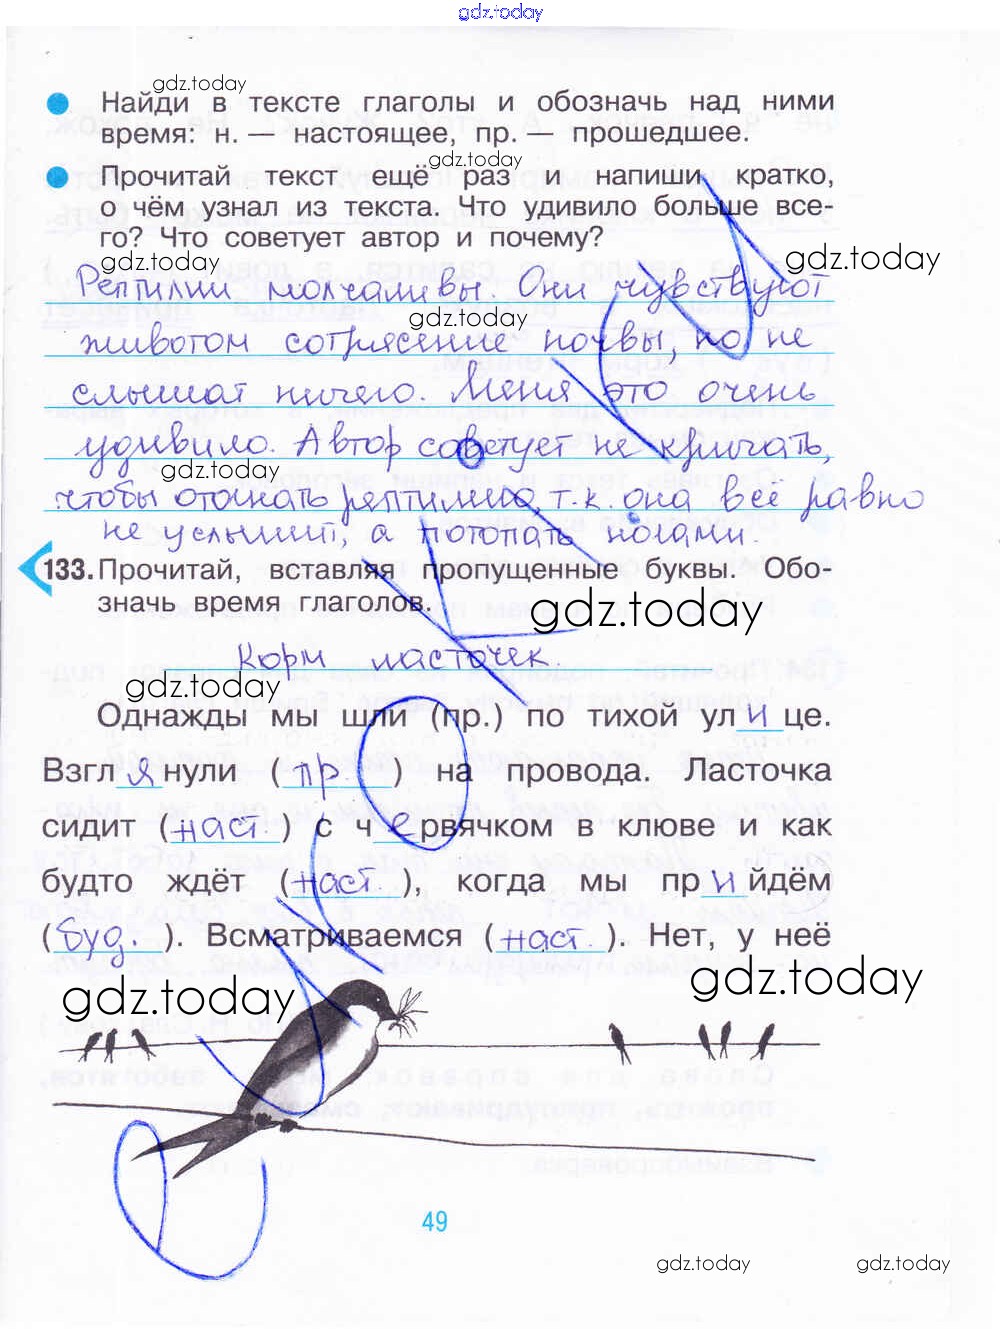 gdz.today
gdz.today
Найди в тексте глаголы и обозначь над ними
время: н. — настоящее, пр. — прошедшее.
gdz.today
Прочитай текст ещё раз и напиши кратко,
о чём узнал из текста. Что удивило больше все-
го? Что советует автор и почему?
gdz.today gdz.today
Рептилии молчаливы. Они чувствуют
gdz.today
животом сотрясение почвы, но не
слышат ничего. Меня это очень
удивило. Автор советует не кричать,
gdz.today
чтобы отогнать рептилию, т.к она всё равно
не услышит, а потопать ногами.
133. Прочитай, вставляя пропущенные буквы. Обо-
значь время глаголов.
gdz.today
Корм ласточек
gdz.today
Однажды мы шли (пр.) по тихой ул и це.
Взгл я нули ( пр ) на провода. Ласточка
сидит ( наст. ) с ч е рвячком в клюве и как
будто ждёт ( наст. ), когда мы пр и йдём
( буд. ). Всматриваемся ( наст. ). Нет, у неё
gdz.today gdz.today
49
gdz.today gdz.today